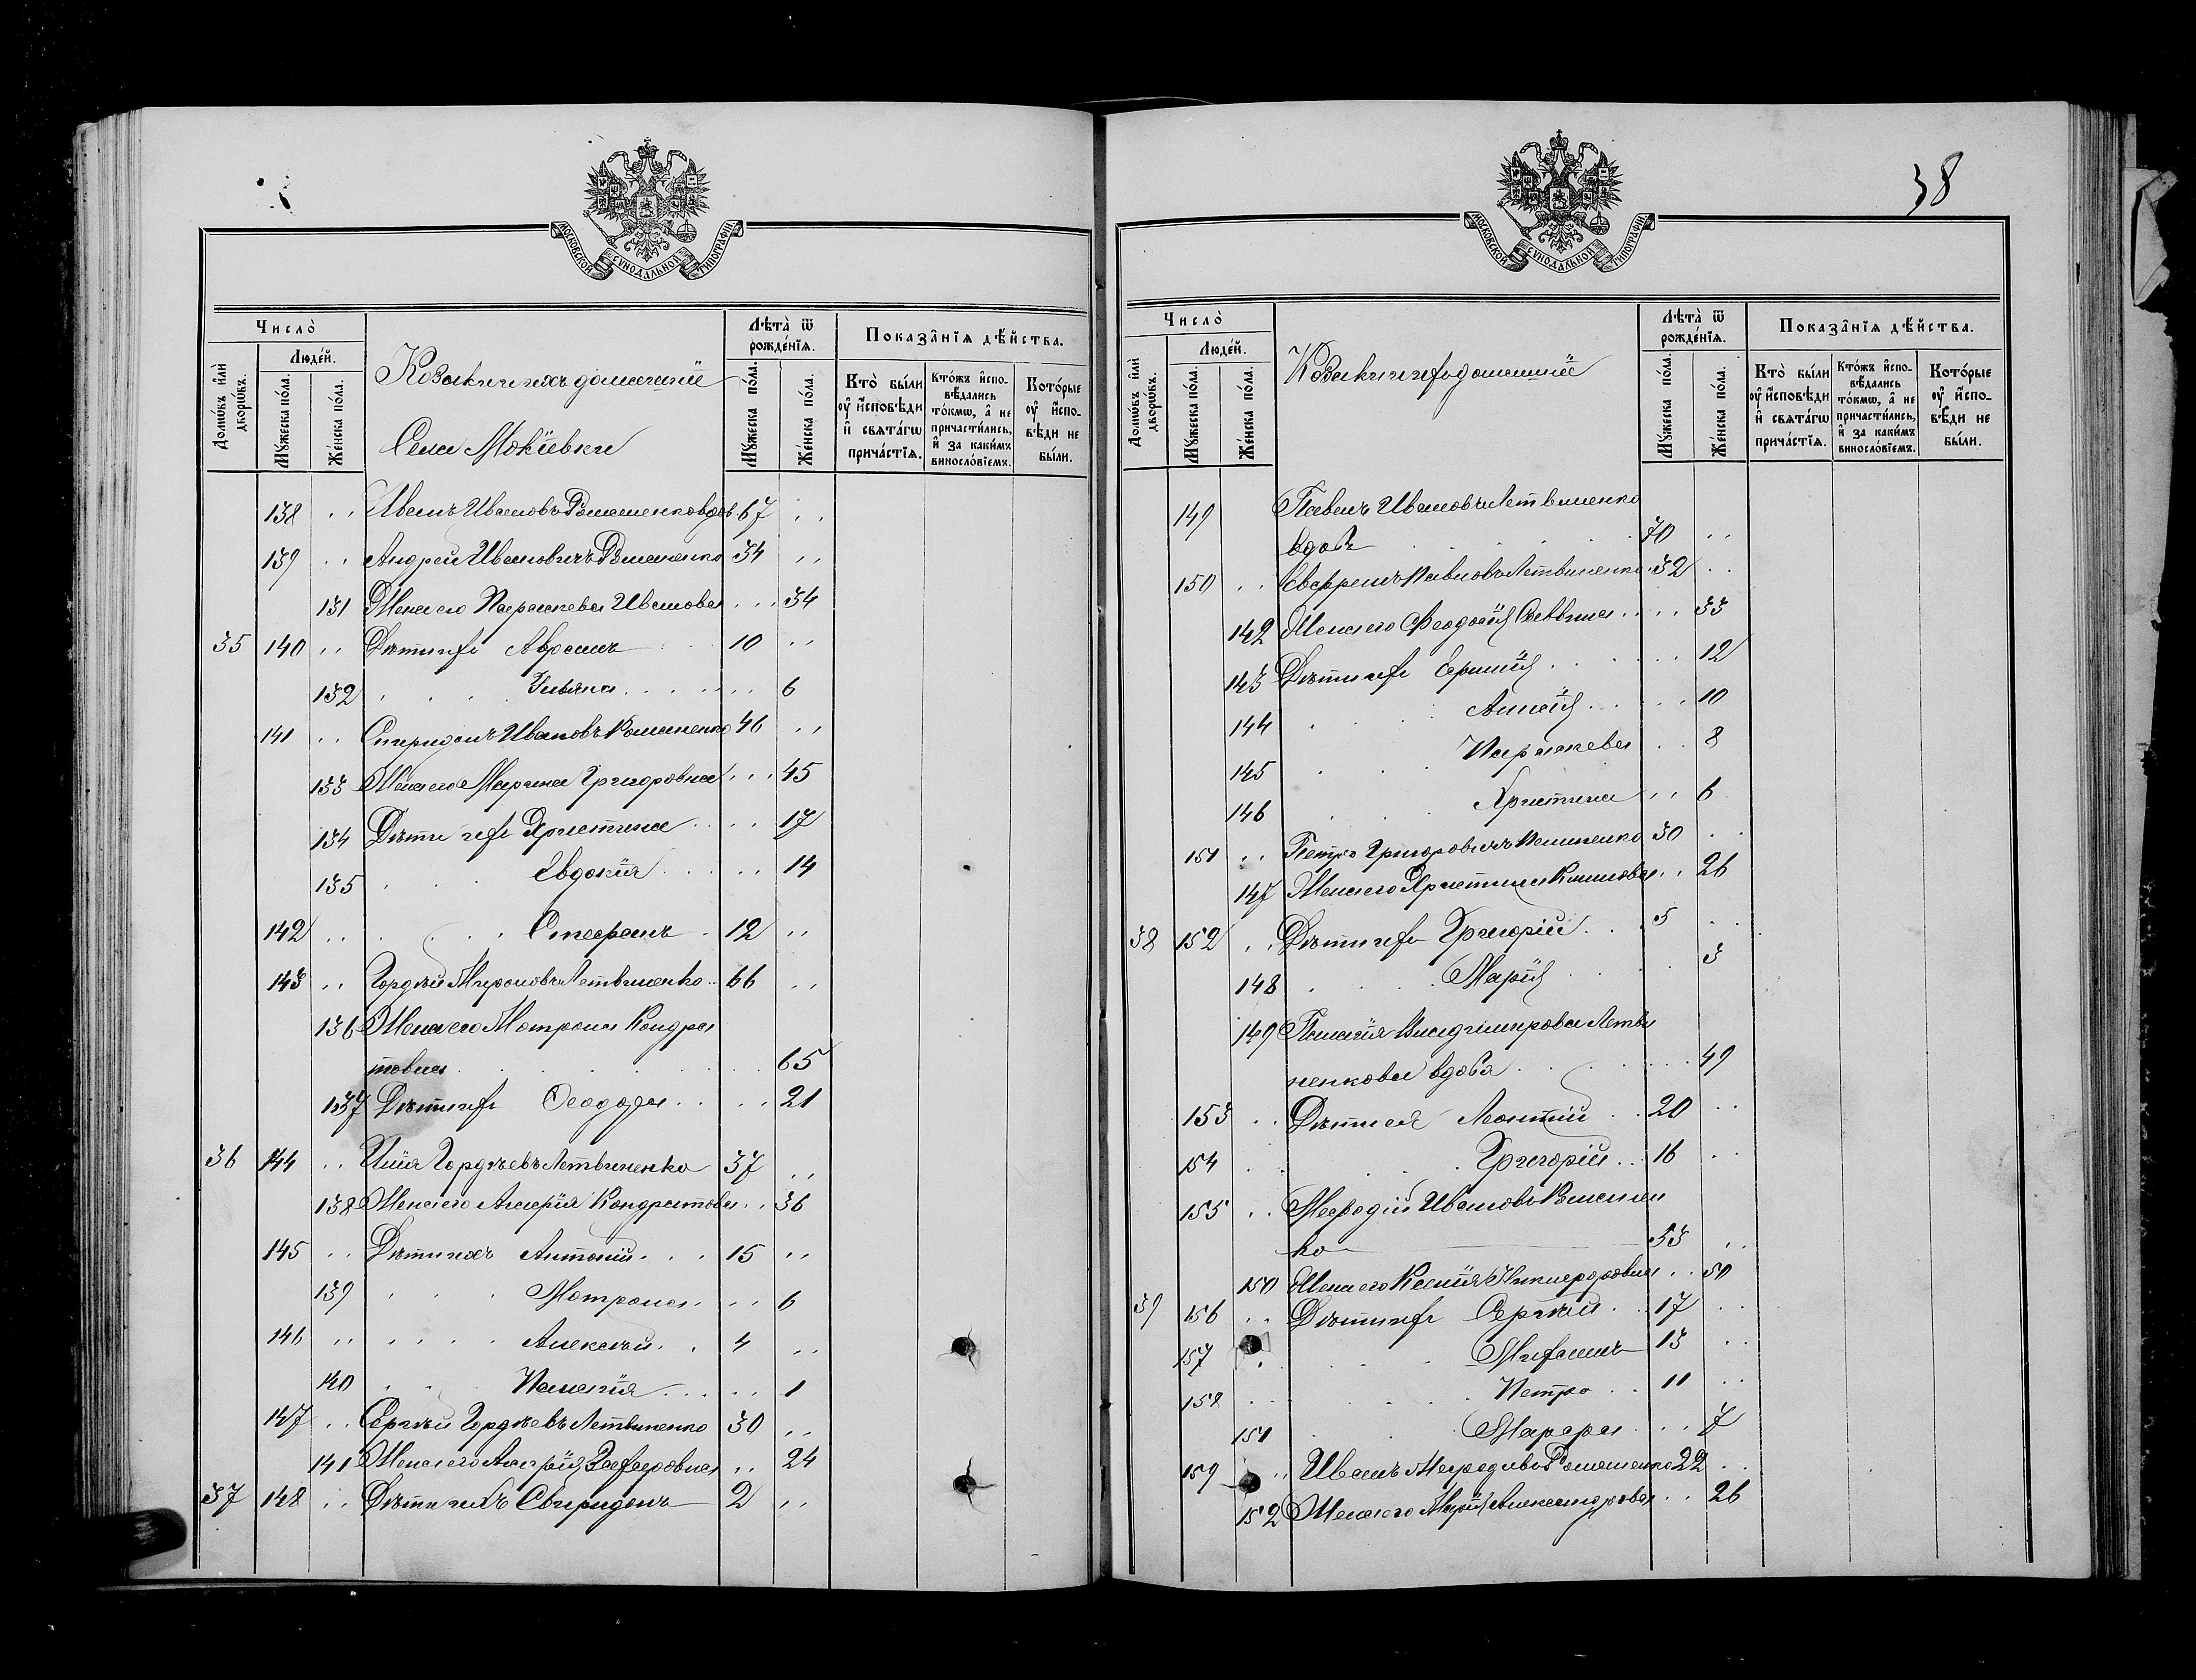 38
МОСКОВСКОЙ СѴНОДАЛЬНОЙ ТИПОГРАФІИ
Число̀
Домѡ́въ и҆лѝ дворѡ́въ.
Люде́й.
Мꙋ́жеска по́ла.
Же́нска по́ла.
Козаки и ихъ домашніе
Села Мокіевки
Лѣта̀ ѿ рожде́нїѧ.
Мꙋ́жеска по́ла.
Же́нска по́ла.
Показа̑нїѧ дѣ́йства.
Кто̀ бы́ли оу҆ и҆́сповѣди и҆ свѧта́гѡ прича́стїѧ.
Кто́жъ и҆спо-вѣ́дались то́кмѡ, а҆ не причасти́лись, и҆ за каки́мъ винослóвїемъ.
Кото́рые оу҆ и҆́спо-вѣди не бы́ли.
138 Иванъ Ивановъ Романенко вдовъ 67
139 Андрей Ивановичъ Романенко 34
131 Жена его Параскева Иванова 34
35 140 Дѣти ихъ Авраамъ 10
132 Ульяна 6
141 Спиридонъ Ивановъ Романенко 46
133 Жена его Марина Григоровна 45
134 Дѣти ихъ Христина 17
135 Евдокія 14
142 Стефанъ 12
143 Гордѣй Мироновъ Летвиненко 66
136 Жена его Мотрона Кондра
товна 65
137 Дѣти ихъ Феодора 21
36 144 Илія Гордѣевъ Летвиненко 37
138 Жена его Агафія Кондратова 36
145 Дѣти ихъ Антоній 15
139 Мотрона 6
146 Алексѣй 4
140 Пелагія 1
147 Сергѣй Гордѣевъ Летвиненко 30
141 Жена его 24
37 148 Дѣти ихъ Свиридонъ 2
МОСКОВСКОЙ СѴНОДАЛЬНОЙ ТИПОГРАФІИ
Число̀
Домѡ́въ и҆лѝ дворѡ́въ.
Люде́й.
Мꙋ́жеска по́ла.
Же́нска по́ла.
Козаки и ихъ домашніе
Лѣта̀ ѿ рожде́нїѧ.
Мꙋ́жеска по́ла.
Же́нска по́ла.
Показа̑нїѧ дѣ́йства.
Кто̀ бы́ли оу҆ и҆́сповѣди и҆ свѧта́гѡ прича́стїѧ.
Кто́жъ и҆спо-вѣ́дались то́кмѡ, а҆ не причасти́лись, и҆ за каки́мъ винослóвїемъ.
Кото́рые оу҆ и҆́спо-вѣди не бы́ли.
149 Павелъ Ивановъ Летвиненко
вдовъ 70
150 Павловъ Летвиненко 32
142 Жена его Феодосія Саввина 33
143 Дѣти ихъ 12
144 10
145 Параскева 8
146 Христина 6
151 Петръ Григоровичъ 30
147 Жена его Христина 26
38 152 Дѣти ихъ Григорій 5
148 Марія 3
149 Пелагія Владимирова Летви
ненкова вдова 49
153 Дѣти ея Леонтій 20
154 Григорій 16
155 Мефодій Ивановъ Романен
ко 53
150 Жена его Ксенія Никифоровна 50
39 156 Дѣти ихъ Сергѣй 17
157 Михаилъ 13
158 Петро 11
151 Марфа 7
159 Иванъ Мефодіевъ Романенко 22
152 Жена его Марія Александрова 26